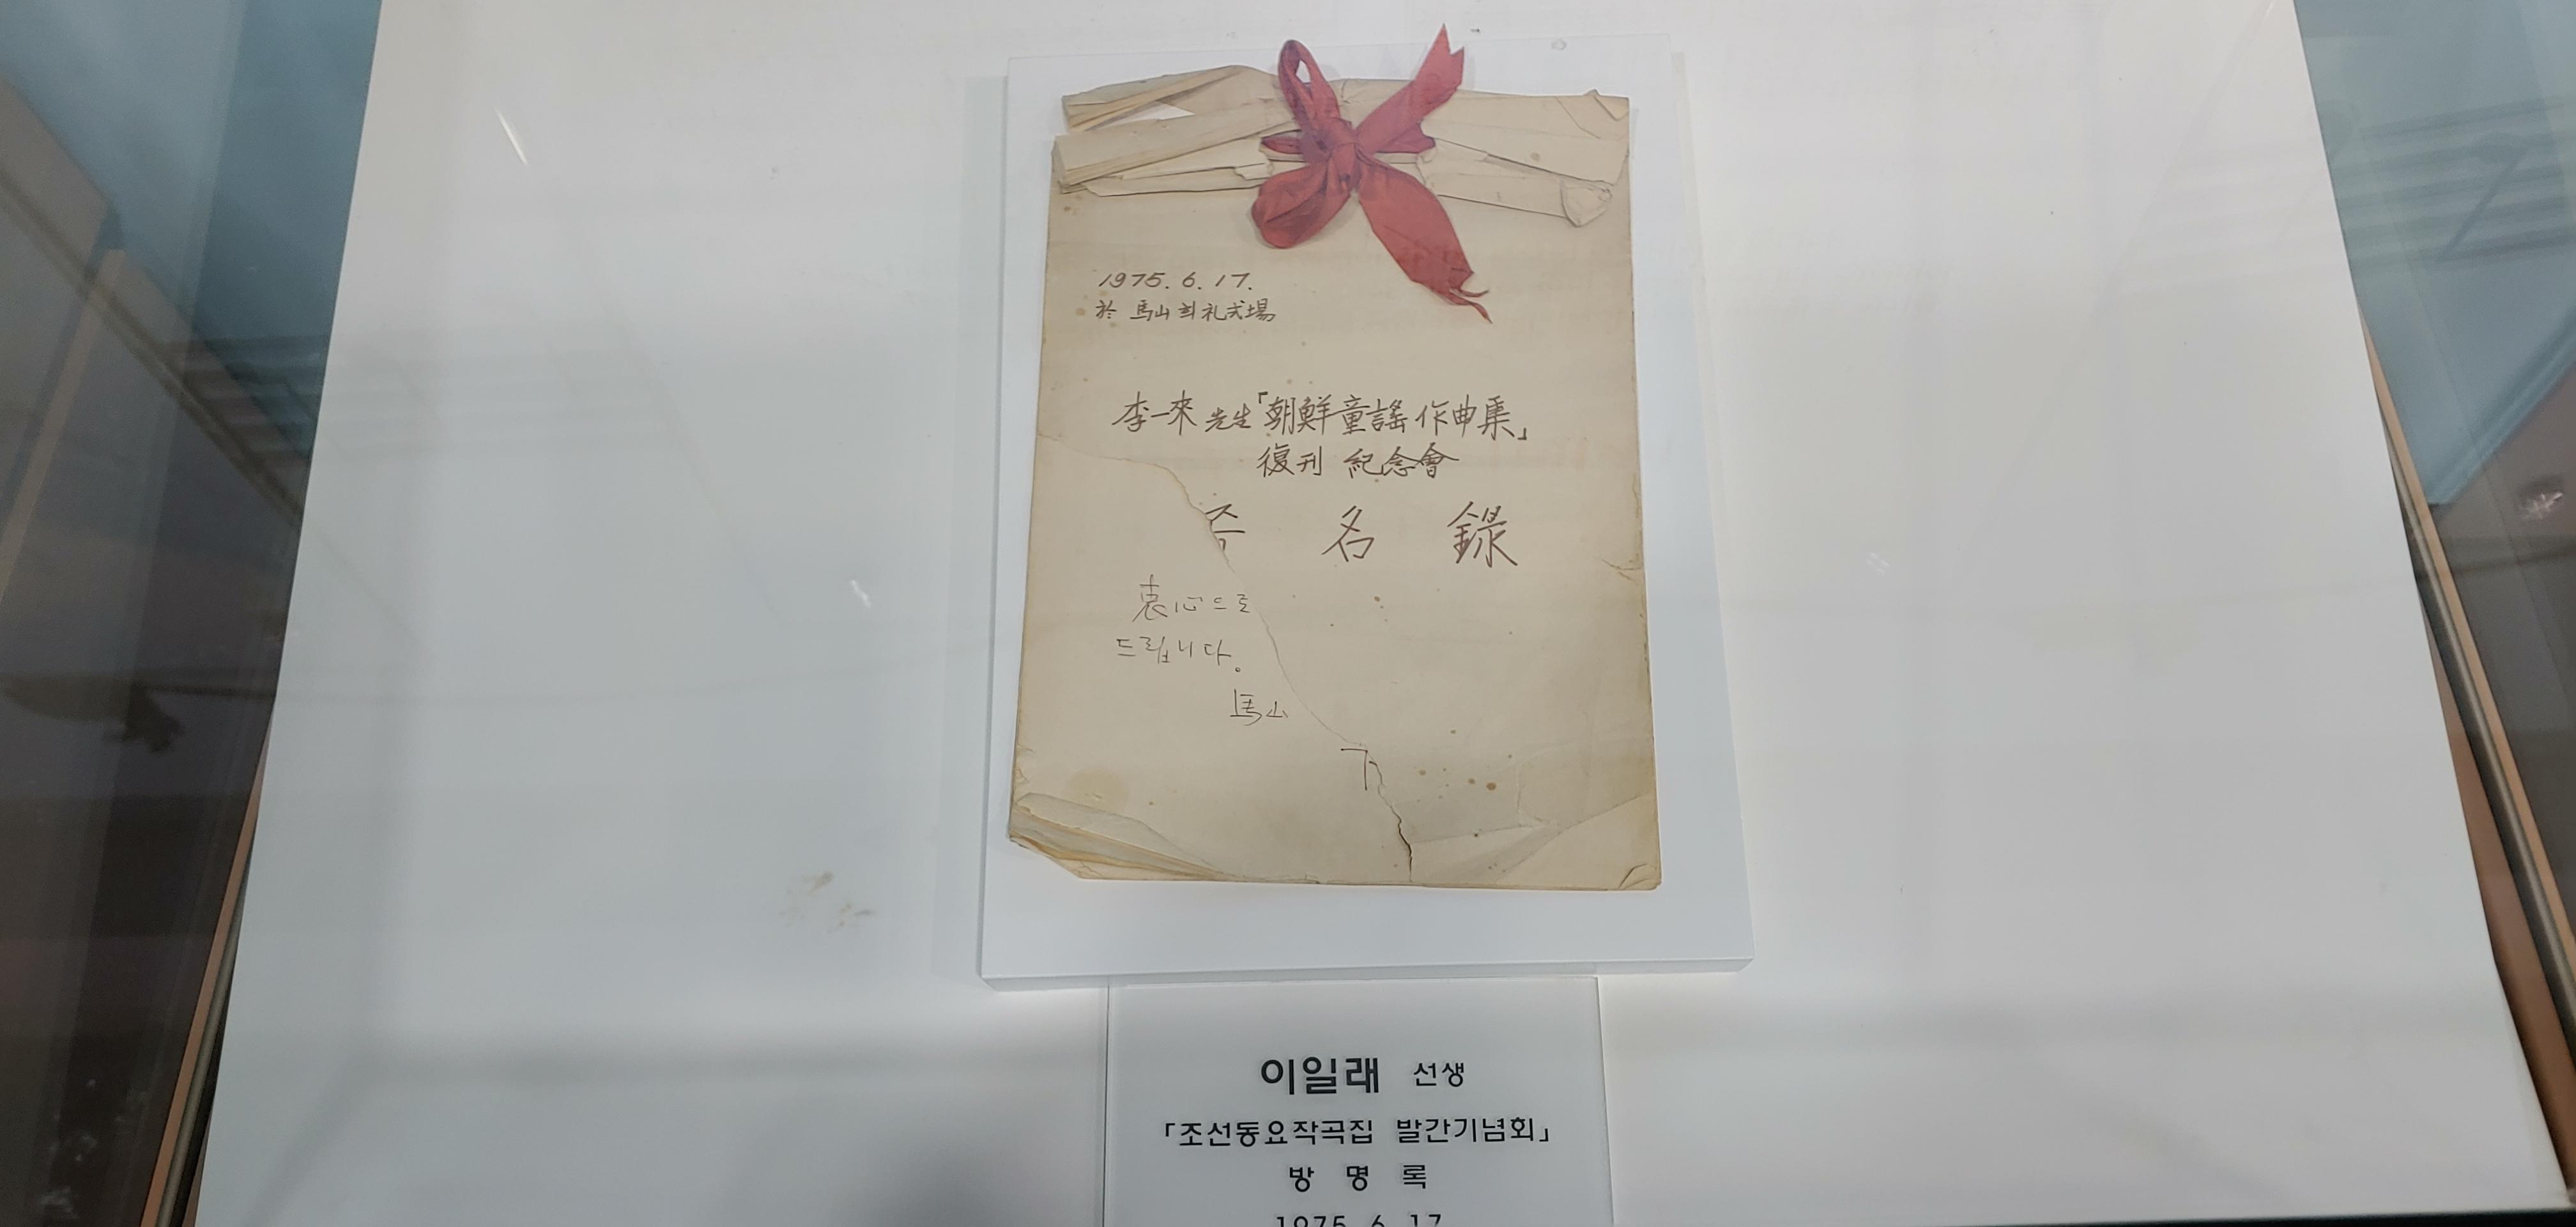 1975. 6. 17.
於 馬山희礼式場
李一來 先生「朝鮮童謠作曲集」
復刊 紀念會
名 錄
衷心으로
드립니다.
馬山
이일래 선생
「조선동요작곡집 발간기념회」
방 명 록
1975. 6. 17